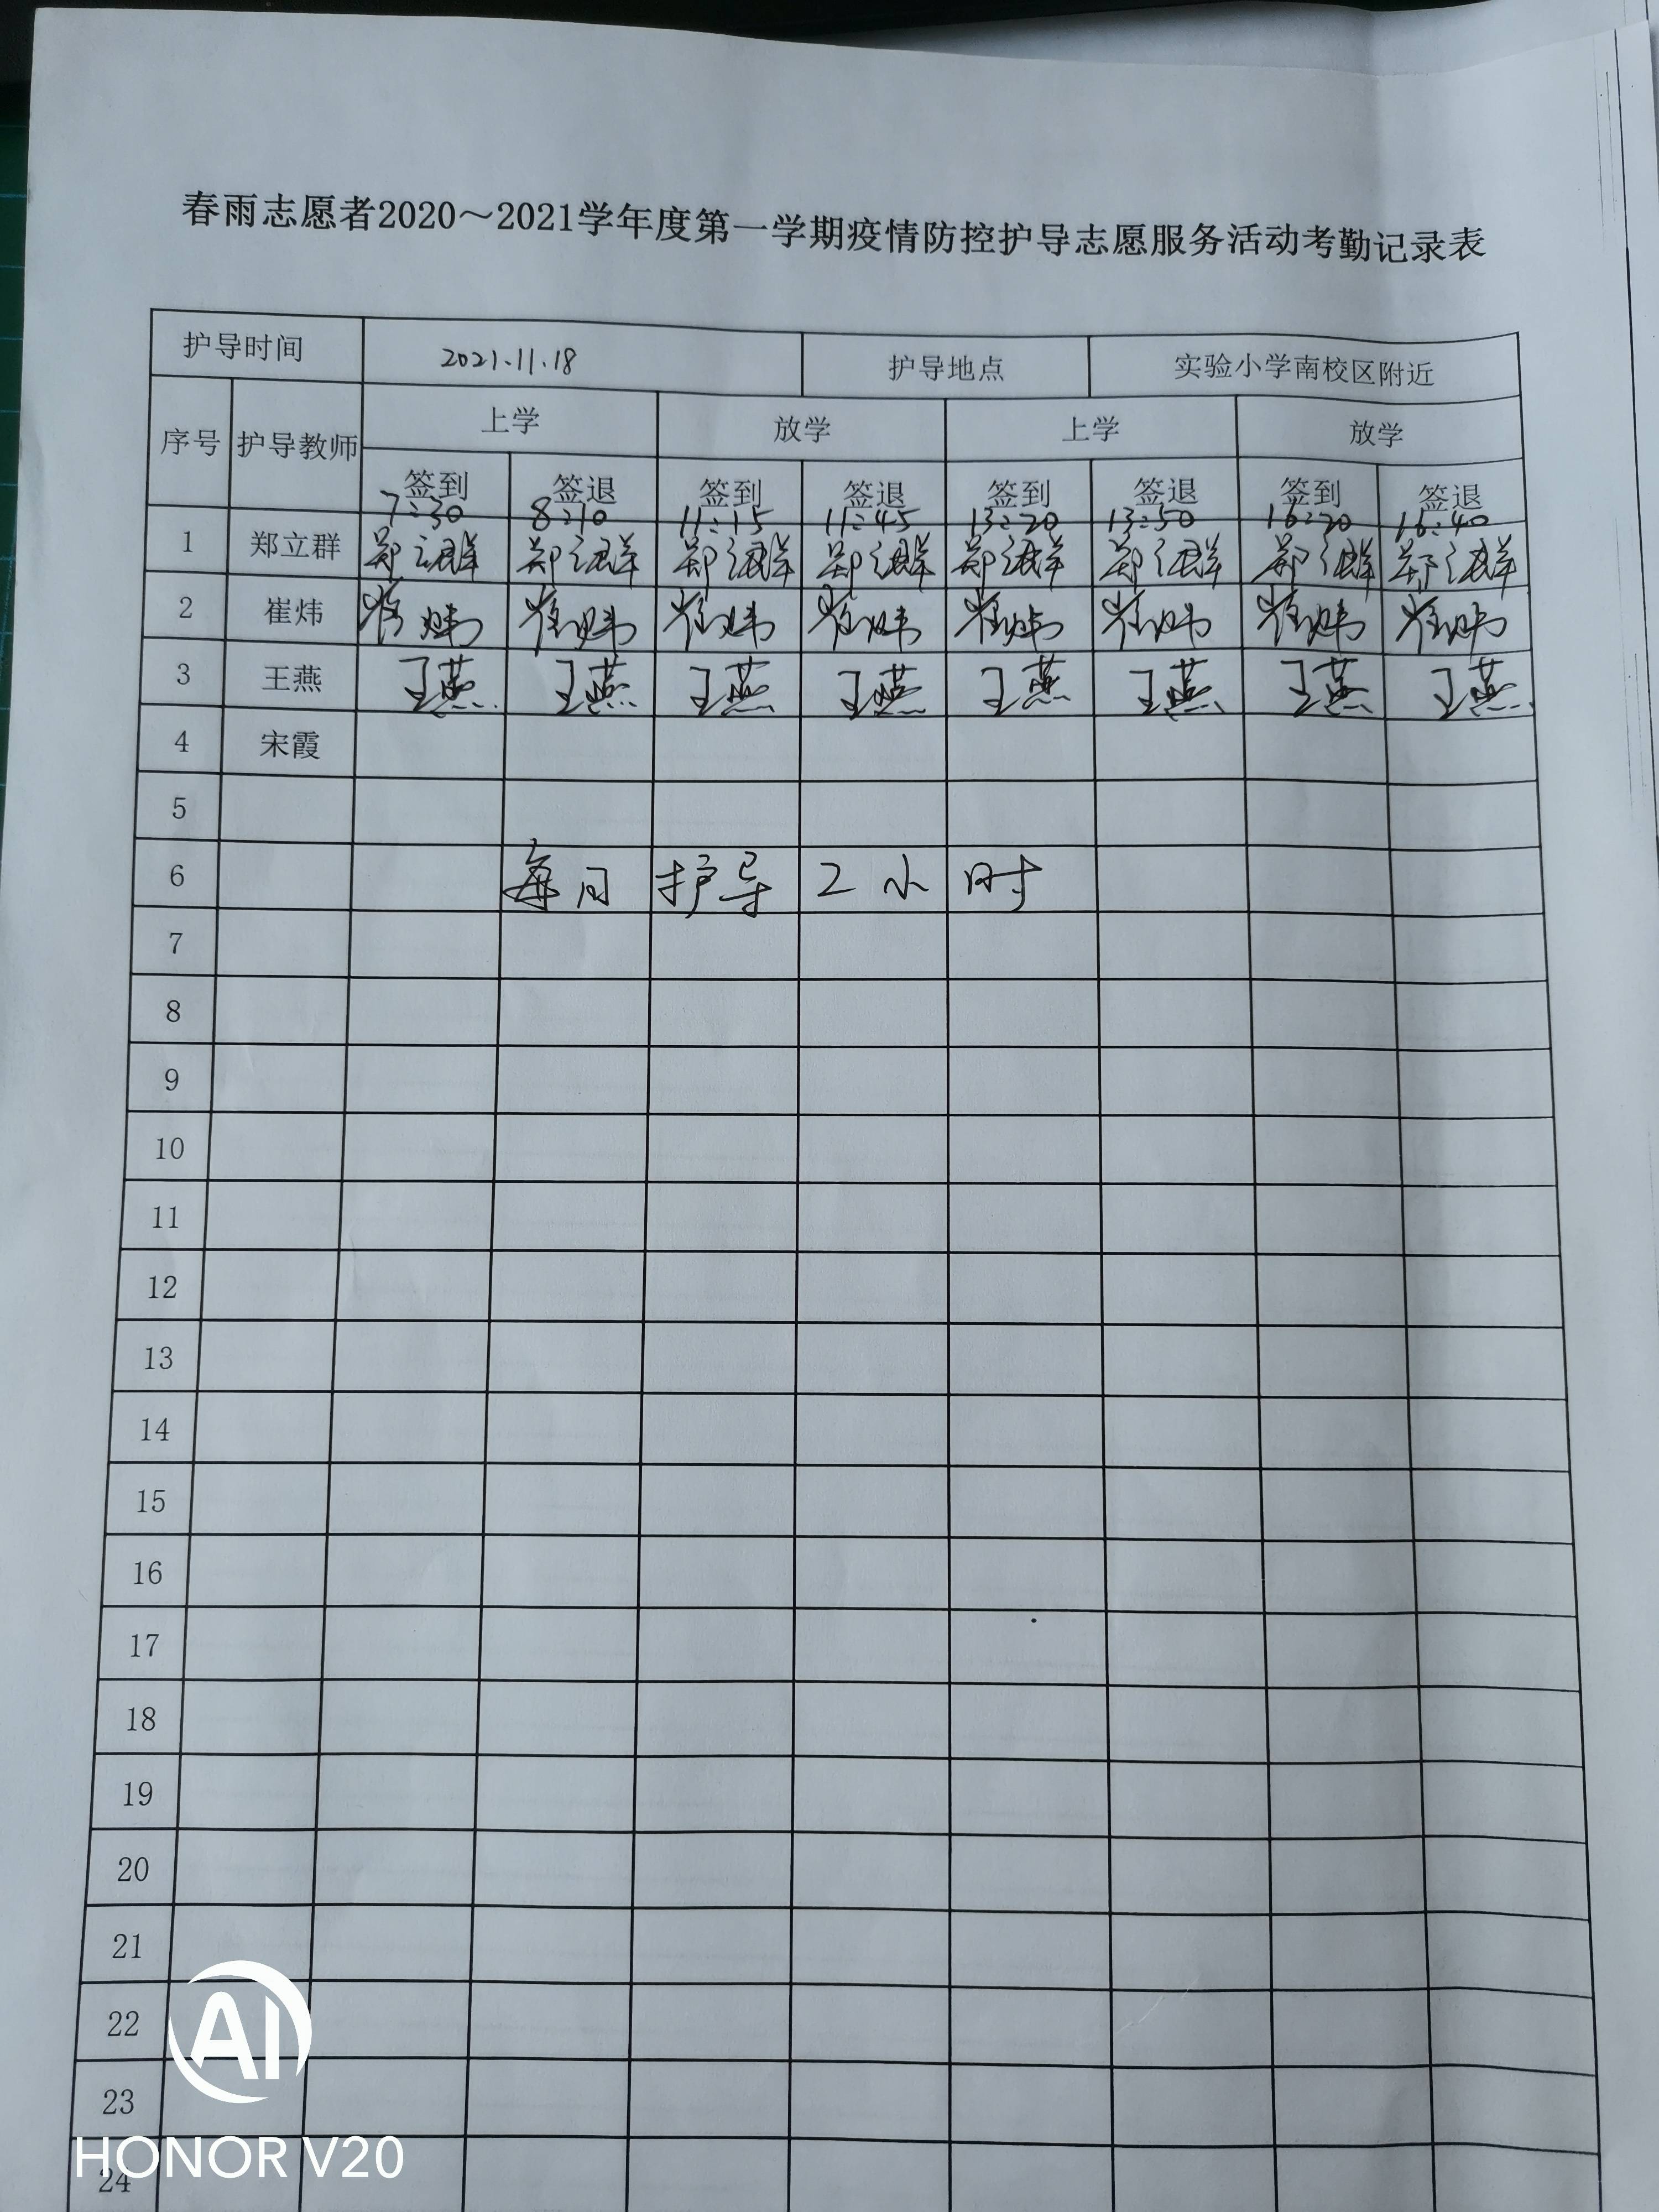 春雨志愿者2020～2021学年度第一学期疫情防控护导志愿服务活动考勤记录表
护导时间 2021.11.18 护导地点 实验小学南校区附近
序号 护导教师 上学 放学 上学 放学
签到 签退 签到 签退 签到 签退 签到 签退
7:30 8:10 11:15 11:45 13:20 13:50 16:20 16:40
1 郑立群 郑立群 郑立群 郑立群 郑立群 郑立群 郑立群 郑立群 郑立群
2 崔炜 崔炜 崔炜 崔炜 崔炜 崔炜 崔炜 崔炜 崔炜
3 王燕 王燕 王燕 王燕 王燕 王燕 王燕 王燕 王燕
4 宋霞
5
6 每日护导2小时
7
8
9
10
11
12
13
14
15
16
17
18
19
20
21
22
23
24
AI
HONOR V20